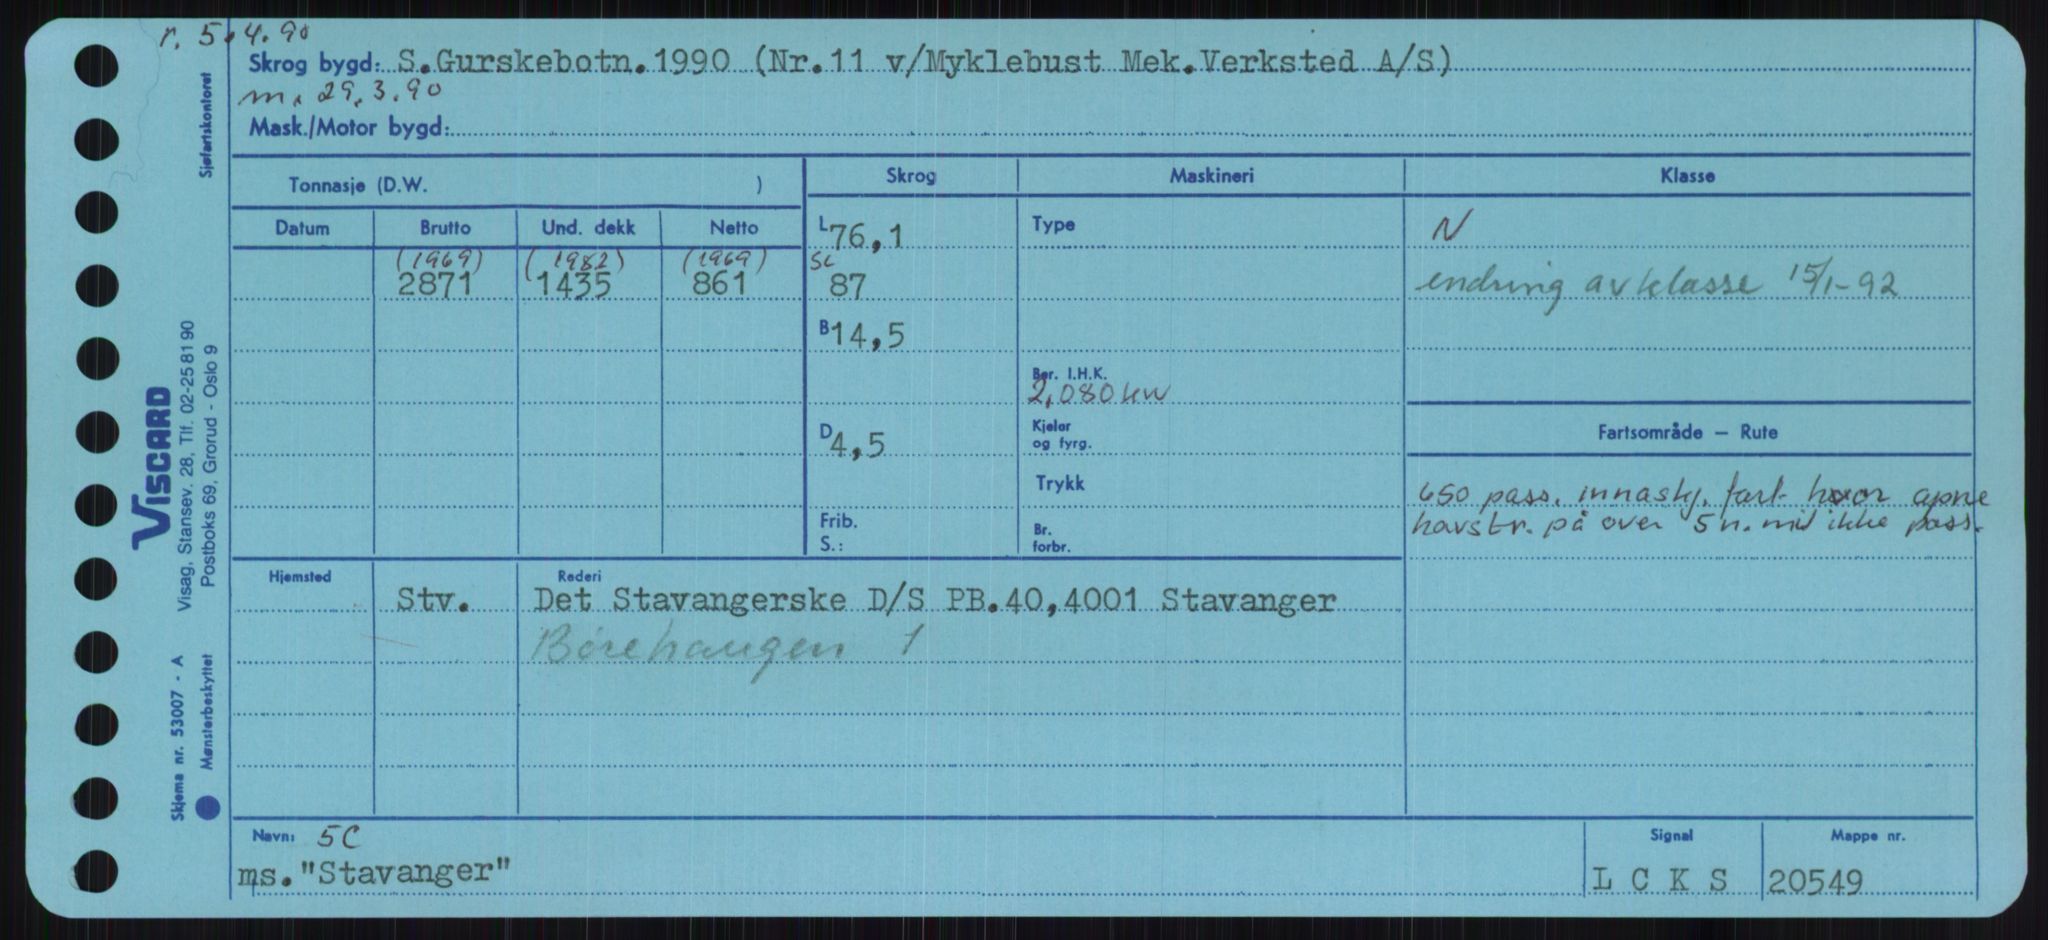 r. 5.4.90
Skrog bygd: S.Gurskebotn.1990 (Nr.11 v/Myklebust Mek.Verksted A/S)
m. 29.3.90
Mask./Motor bygd:
Tonnasje (D.W. )
Skrog Maskineri Klasse
Datum Brutto Und. dekk Netto
L 76,1 Type N
(1969) (1982) (1969) SL
2871 1435 861 87 endring av klasse 15/1-92
B 14,5
Ber. I.H.K.
2,080 kw
D 4,5 Kjeler
og fyrg. Fartsområde – Rute
Trykk 650 pass. innaskj. fart hvor åpne
Frib. Br. havstr. på over 5 n. mil ikke pass.
S.: forbr.
Hjemsted Rederi
Stv. Det Stavangerske D/S PB.40,4001 Stavanger
Børehaugen 1
Navn: 5C Signal Mappe nr.
ms."Stavanger" L C K S 20549
Sjøfartskontoret
VISCARD
Visag, Stansev. 28, Tlf. 02-25 81 90
Postboks 69, Grorud - Oslo 9
Skjema nr. 53007 - A
Mønsterbeskyttet